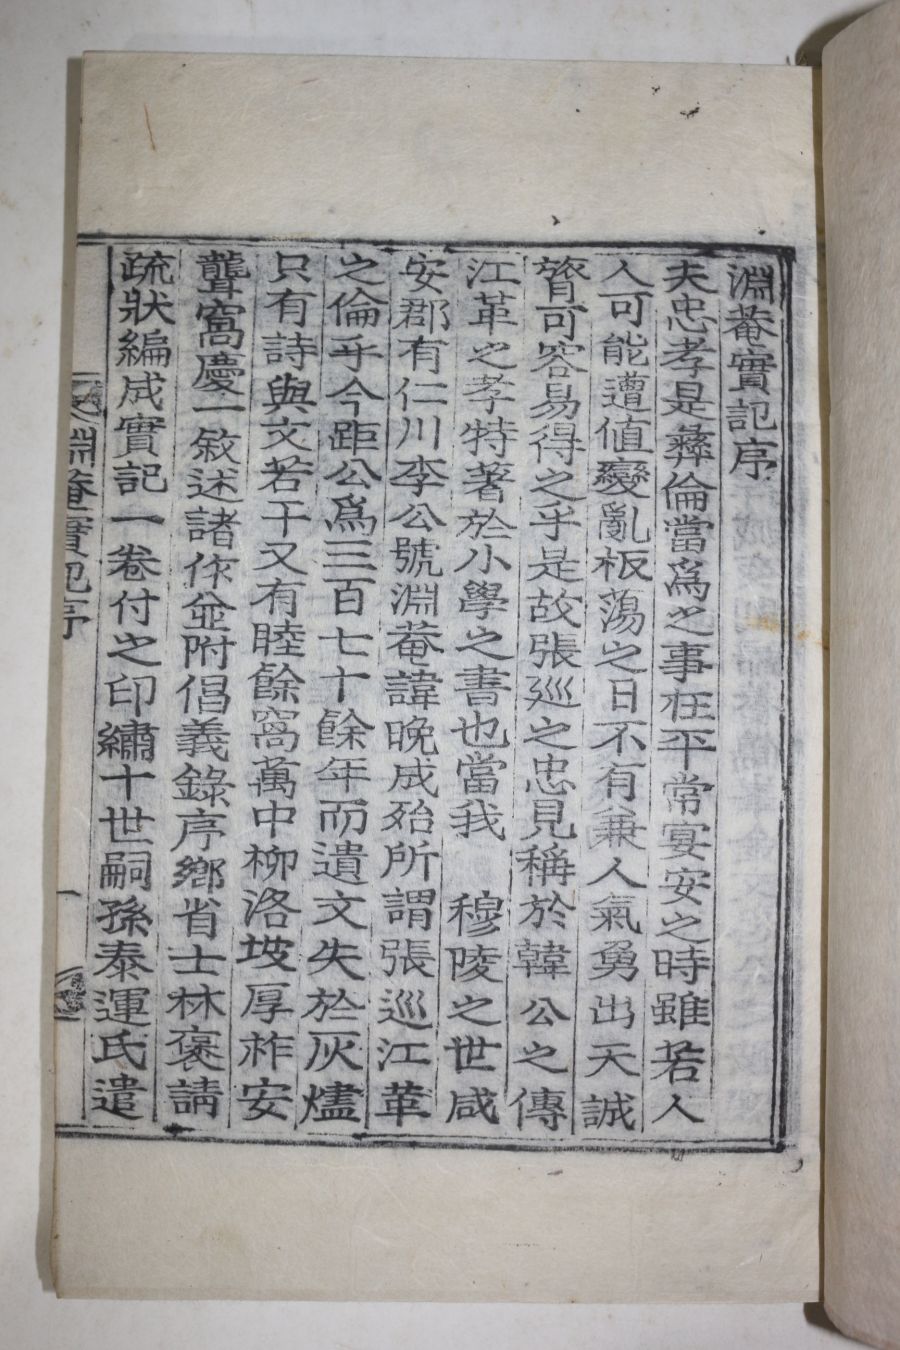 淵菴實記序
夫忠孝是彝倫當爲之事在平常宴安之時雖若人
人可能遭値變亂板蕩之日不有兼人氣勇出天誠
膂可容易得之乎是故張巡之忠見稱於韓公之傳
江革之孝特著於小學之書也當我　穆陵之世咸
安郡有仁川李公號淵菴諱晩成殆所謂張巡江革
之倫乎今距公爲三百七十餘年而遺文失於灰燼
只有詩與文若干又有睦餘窩萬中柳洛坡厚祚安
聾窩慶一敘述諸作並附倡義錄序鄉省士林褒請
疏狀編成實記一卷付之印繡十世嗣孫泰運氏遣
淵菴實記序
一